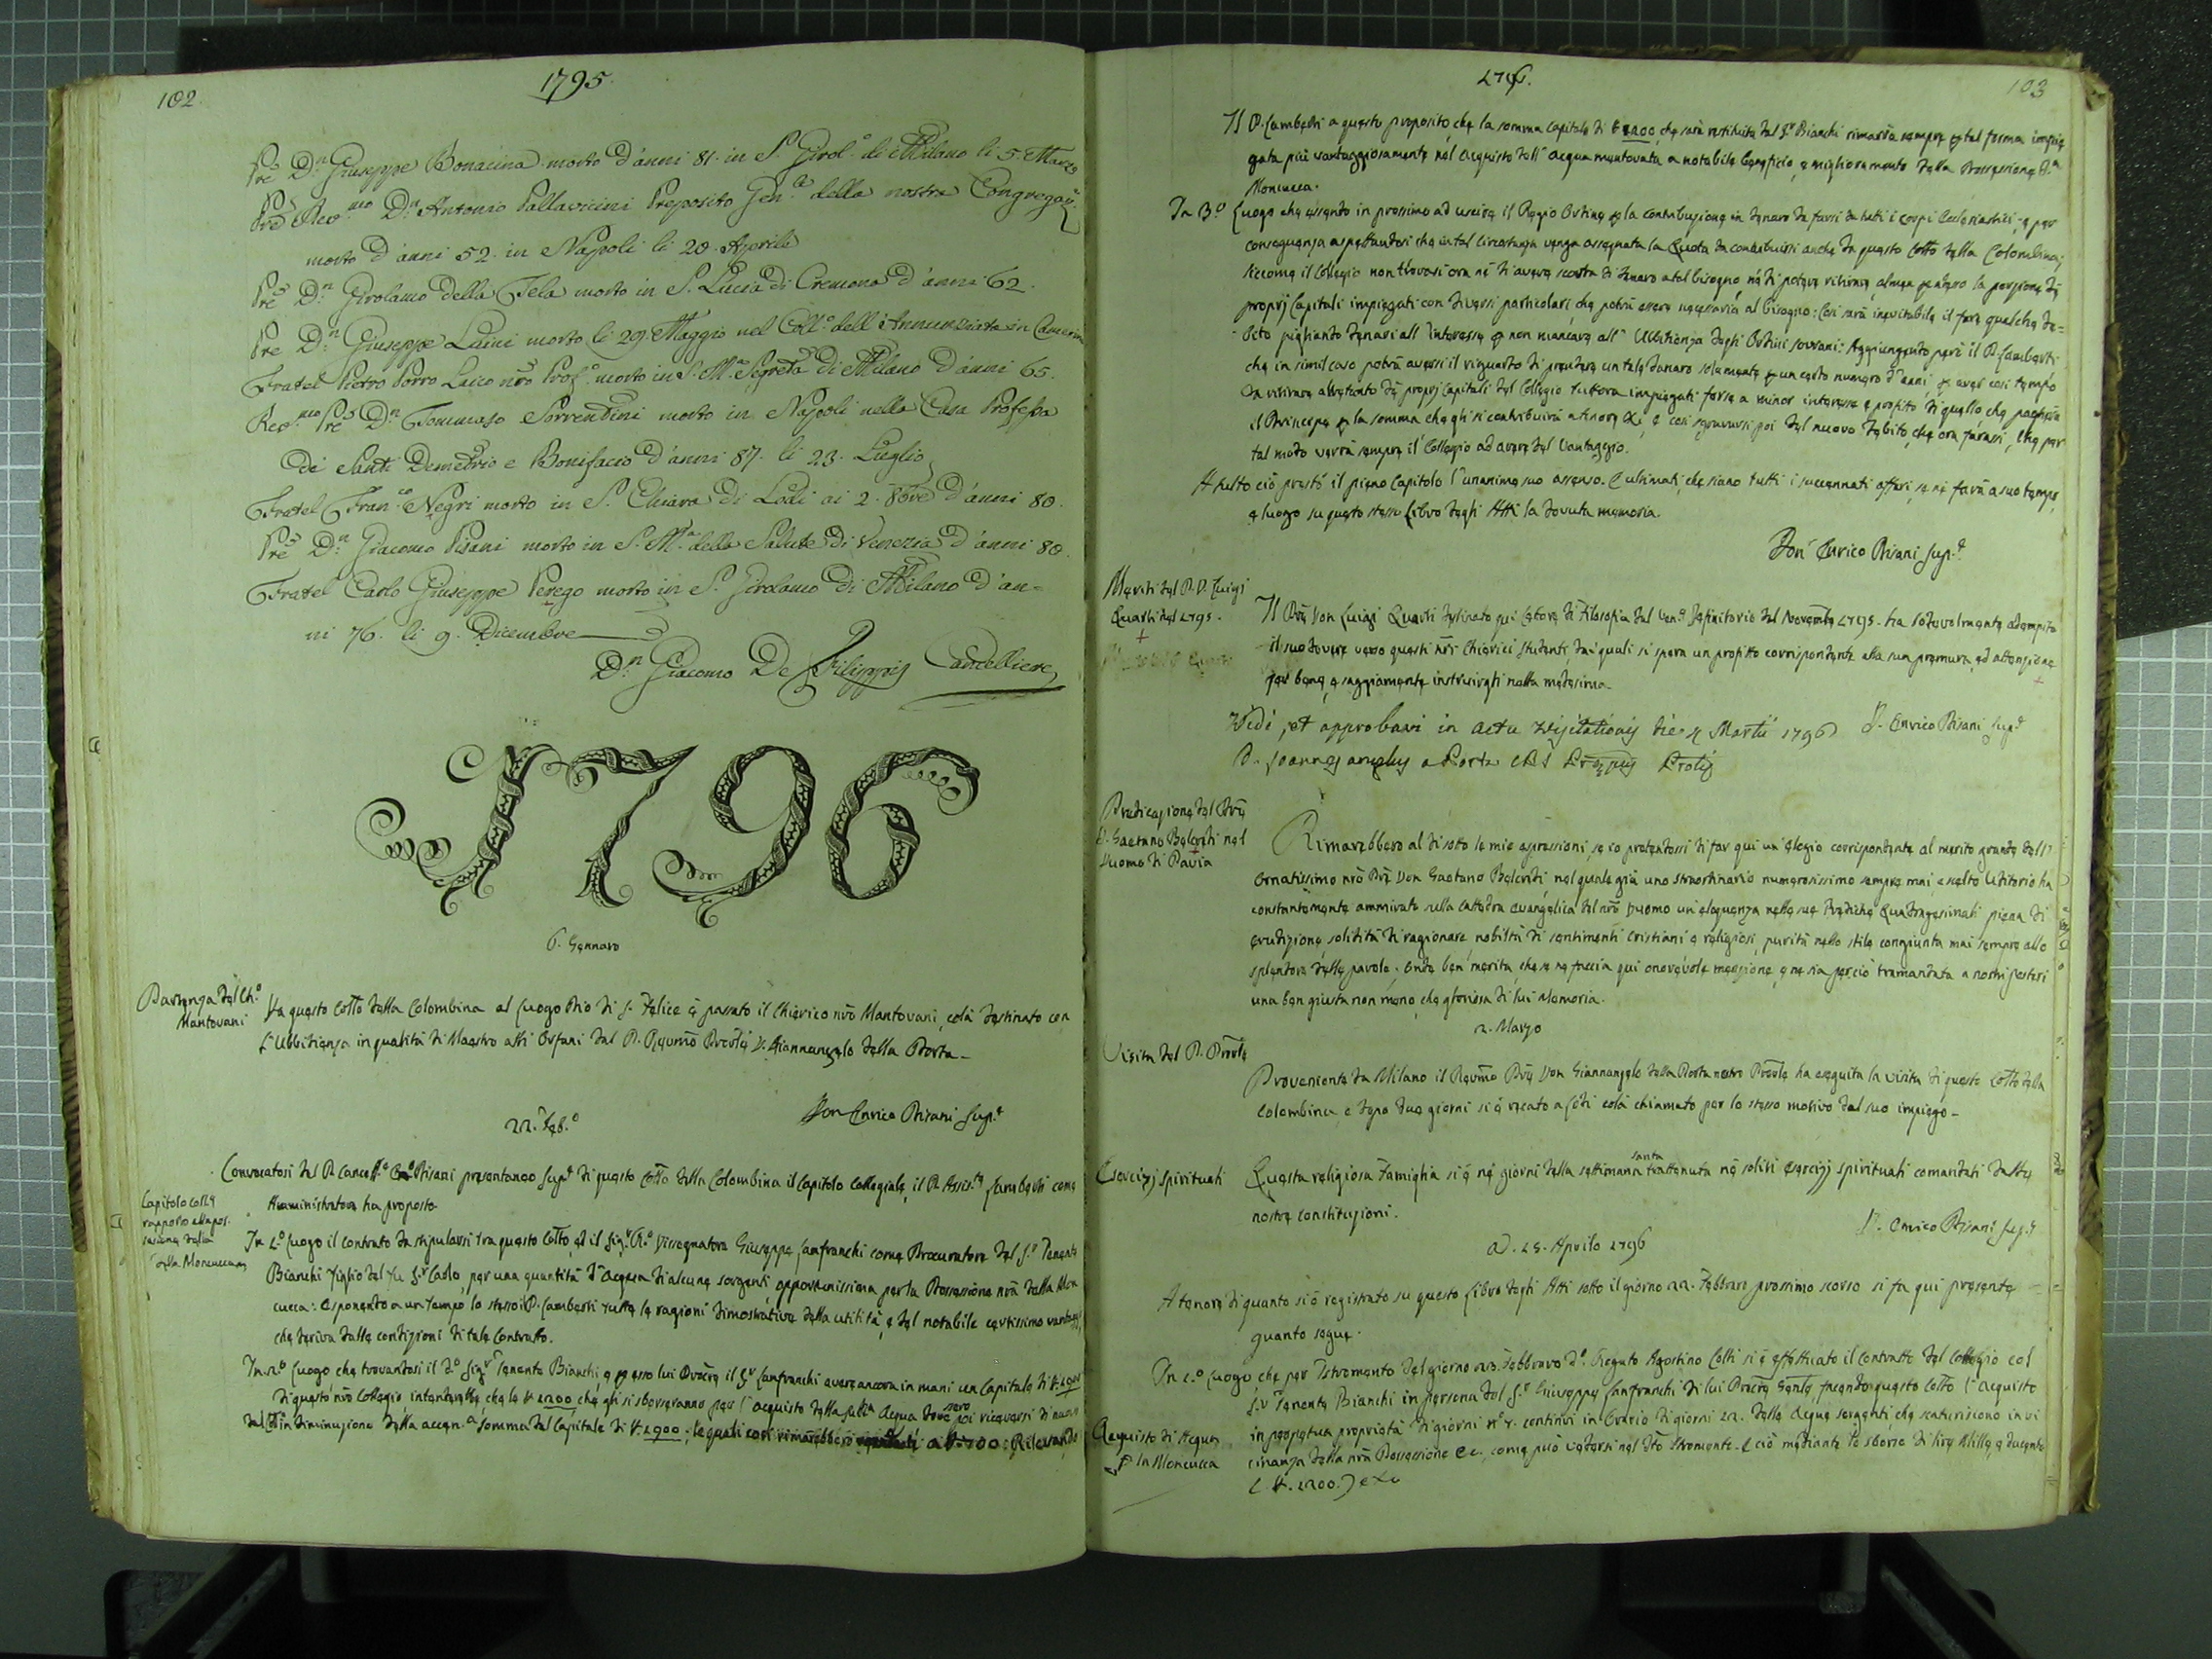 102
1795
Prē D.n Giuseppe Bonacina morto d'anni 81. in S. Girol.o di Milano li 5. Marzo
Prē Rev.mo D.n Antonio Pallavicini Preposito Gen.le della nostra Congregaz.e
morto d'anni 52. in Napoli li 20. Aprile
Prē D.n Girolamo della Tela morto in S. Lucia di Cremona d'anni 62.
Prē D.n Giuseppe Luini morto li 29. Maggio nel Coll.o dell'Annunziata in Camerin
Fratel Pietro Porro Laico nrō Prof.o morto in S. M.a Segreta di Milano d'anni 65.
Rev.mo Prē D.n Tommaso Sorrentini morto in Napoli nella Casa Professa
de Santi Demetrio e Bonifacio d'anni 87. li 23. Luglio
Fratel Fran.co Negri morto in S. Chiara di Lodi ai 2. 8bre d'anni 80.
Prē D.n Giacomo Pisani morto in S. M.a della Salute di Venezia d'anni 80.
Fratel Carlo Giuseppe Perego morto in S. Girolamo di Milano d'an=
ni 76. li 9. Dicembre
D.n Giacomo De Filippis Cancelliere
1796
6. Gennaro
Partenza del Ch.o
Mantovani
Da questo Collō della Colombina al Luogo Pio di S. Felice è passato il Chierico nrō Mantovani, colà destinato con
l'Ubbidienza in qualità di Maestro alli Orfani dal P. Revmō Provle D. Giannangelo della Porta.
Don Enrico Pisani Sup.e
22. Feb.o
Convocatosi dal P. Cancell.e Pisani presentaneo Sup.e di questo Collō della Colombina il Capitolo Collegiale, il P. Assis.te Lamberti come
Amministratore ha proposto
Capitolo colla
rapporto alla pos.
sessione della
della Moncucca
In 1.o Luogo il contratto da stipularsi tra questo Collō, ed il Sig.r R.o Dissegnatore Giuseppe Lanfranchi come Procuratore del S.r Tenente
Bianchi Figlio del fu S.r Carlo, per una quantità d'Acqua di alcune sorgenti opportunissima per la Possessione nrā della Mon
cucca: Esponendo a un tempo lo stesso P. Lamberti tutte le ragioni dimostrative della utilità, e del notabile certissimo vantag
che deriva dalle condizioni di tale Contratto.
In 2.o Luogo che trovandosi il d.o Sig.r Tenente Bianchi, e per esso lui Procre il S.r Lanfranchi avere ancora in mani un Capitale di
di questo nrō Collegio, intenderebbe, che le 1200 che gli si sborseranno per l'acquisto della sud.a Acqua poi riceversi di nuovo
dal Collō in diminuzione della accen.a somma del Capitale di 1900; le quali così rimarebbero a 700: Rilevando
1796.
103
Il P. Lamberti a questo proposito, che la somma capitale di 1200, che sarà restituita dal S.r Bianchi rimarrà sempre per tal forma impie
gata più vantaggiosamente nel acquisto dell'acqua mentovata, a notabile beneficio, e miglioramento della Possessione d.a
Moncucca.
In 3.o Luogo che essendo in prossimo ad uscire il Regio Ordine per la contribuzione in denaro da farsi da tutti i corpi Ecclesiastici, e per
conseguenza aspettandosi che in tal circostanza venga assegnata la Quota da contribuirsi anche da questo Collō della Colombina;
siccome il Collegio non trovasi ora nè di avere scorta di denaro a tal bisogno nè di potere ritirare almen per adesso la porzione de
proprj Capitali impiegati con diversi particolari che potrà essere necessaria al bisogno: Così sarà inevitabile il fare qualche de=
bito pigliando denari all'interesse per non mancare all'Ubbidienza degli Ordini sovrani: Aggiungendo però il P. Lamberti
che in simil caso potrà aversi il riguardo di prendere un tale danaro solamente per un certo numero d'anni per aver così tempo
da ritirare altrettanto de proprj Capitali del Collegio tuttora impiegati forse a minor interesse e profitto di quello che
il Principe per la somma che gli si contribuirà a tenore e così sgravarsi poi del nuovo debito, che ora farassi, che per
tal modo verrà sempre il Collegio ad avere del Vantaggio.
A tutto ciò prestò il pieno Capitolo l'unanime suo assenso. E ultimati, che siano tutti i succennati affari, se ne farà a suo tempo,
e luogo su questo stesso Libro degli Atti la dovuta memoria.
Don Enrico Pisani Sup.e
Meriti del P. D. Luigi
Quarti nel 1795.
Il Prē Don Luigi Quarti destinato qui Lettore di Filosofia dal Ven.e Definitorio del Novembre 1795. ha lodevolmente adempito
il suo dovere verso questi nrī Chierici Studenti, da quali si spera un profitto corrispondente alla sua premura, ed attenzione
per bene, e saggiamente instruirgli nella medesima.
D. Enrico Pisani Sup.e
Vidi, et approbavi in actu Visitationis die Martii 1796
D. Joannes Angelus a Porta CRS Provlis
Predicazione del Prē
D. Gaetano Belcredi nel
Duomo di Pavia
Rimarebbero al disotto le mie espressioni, se io pretendessi di far qui un'elogio corrispondente al merito grande dell'
Ornatissimo nrō Prē Don Gaetano Belcredi, nel quale già uno straordinario numerosissimo sempre mai e scelto Uditorio ha
constantemente ammirato sulla Cattedra evangelica del nrō Duomo un'eloquenza nelle sue Prediche Quadragesimali piena di
erudizione, solidità di ragionare, nobiltà di sentimenti cristiani e religiosi, purità nello stile congiunta mai sempre allo
splendore delle parole. Onde ben merita che se ne faccia qui onorevole menzione, e ne sia perciò tramandata a nostri posteri
una ben giusta non meno, che gloriosa di lui Memoria.
2. Marzo
Visita del P. Provle
Proveniente da Milano il Revmō Prē Don Giannangelo della Porta nostro Provle ha eseguita la visita di questo Collō della
Colombina, e dopo due giorni si è recato a Lodi colà chiamato per lo stesso motivo dal suo impiego.
Esercizj Spirituali
Questa religiosa Famiglia si è ne' giorni della settimana santa trattenuta ne' soliti esercizj spirituali comandati dalle
nostre constituzioni.
D. Enrico Pisani Sup.e
Ad. 15. Aprile 1796
A tenore di quanto si è registrato su questo Libro degli Atti sotto il giorno 22. Febbraro prossimo scorso si fa qui presente
quanto segue.
Acquisto di Acqua
per la Moncucca
In 1.o Luogo che per Istromento del giorno 23. Febbraro d.o Rogato Agostino Colli si è effettuato il contratto del Collegio col
S.r Tenente Bianchi in persona del S.r Giuseppe Lanfranchi di lui Procre Genle facendo questo Collō l'acquisto
in perpetua proprietà di giorni continui in Orario di giorni 22. delle Acque sorgenti che scaturiscono in vi
cinanza della nrā Possessione &c., come può vedersi nel dto Stromento. E ciò mediante lo sborso di lire Mille, e ducento
(1200.)